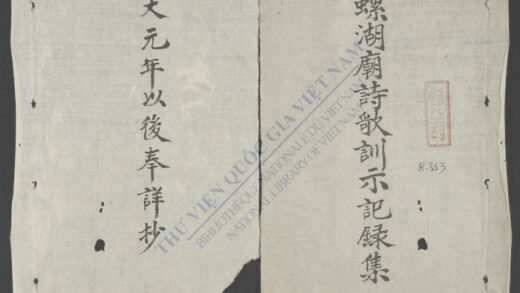 螺湖廟詩歌訓示記録集
大元年以後奉詳抄
R.353
THƯ VIỆN QUỐC GIA VIỆT NAM
BIBLIOTHÈQUE NATIONALE DU VIETNAM
NATIONAL LIBRARY OF VIETNAM